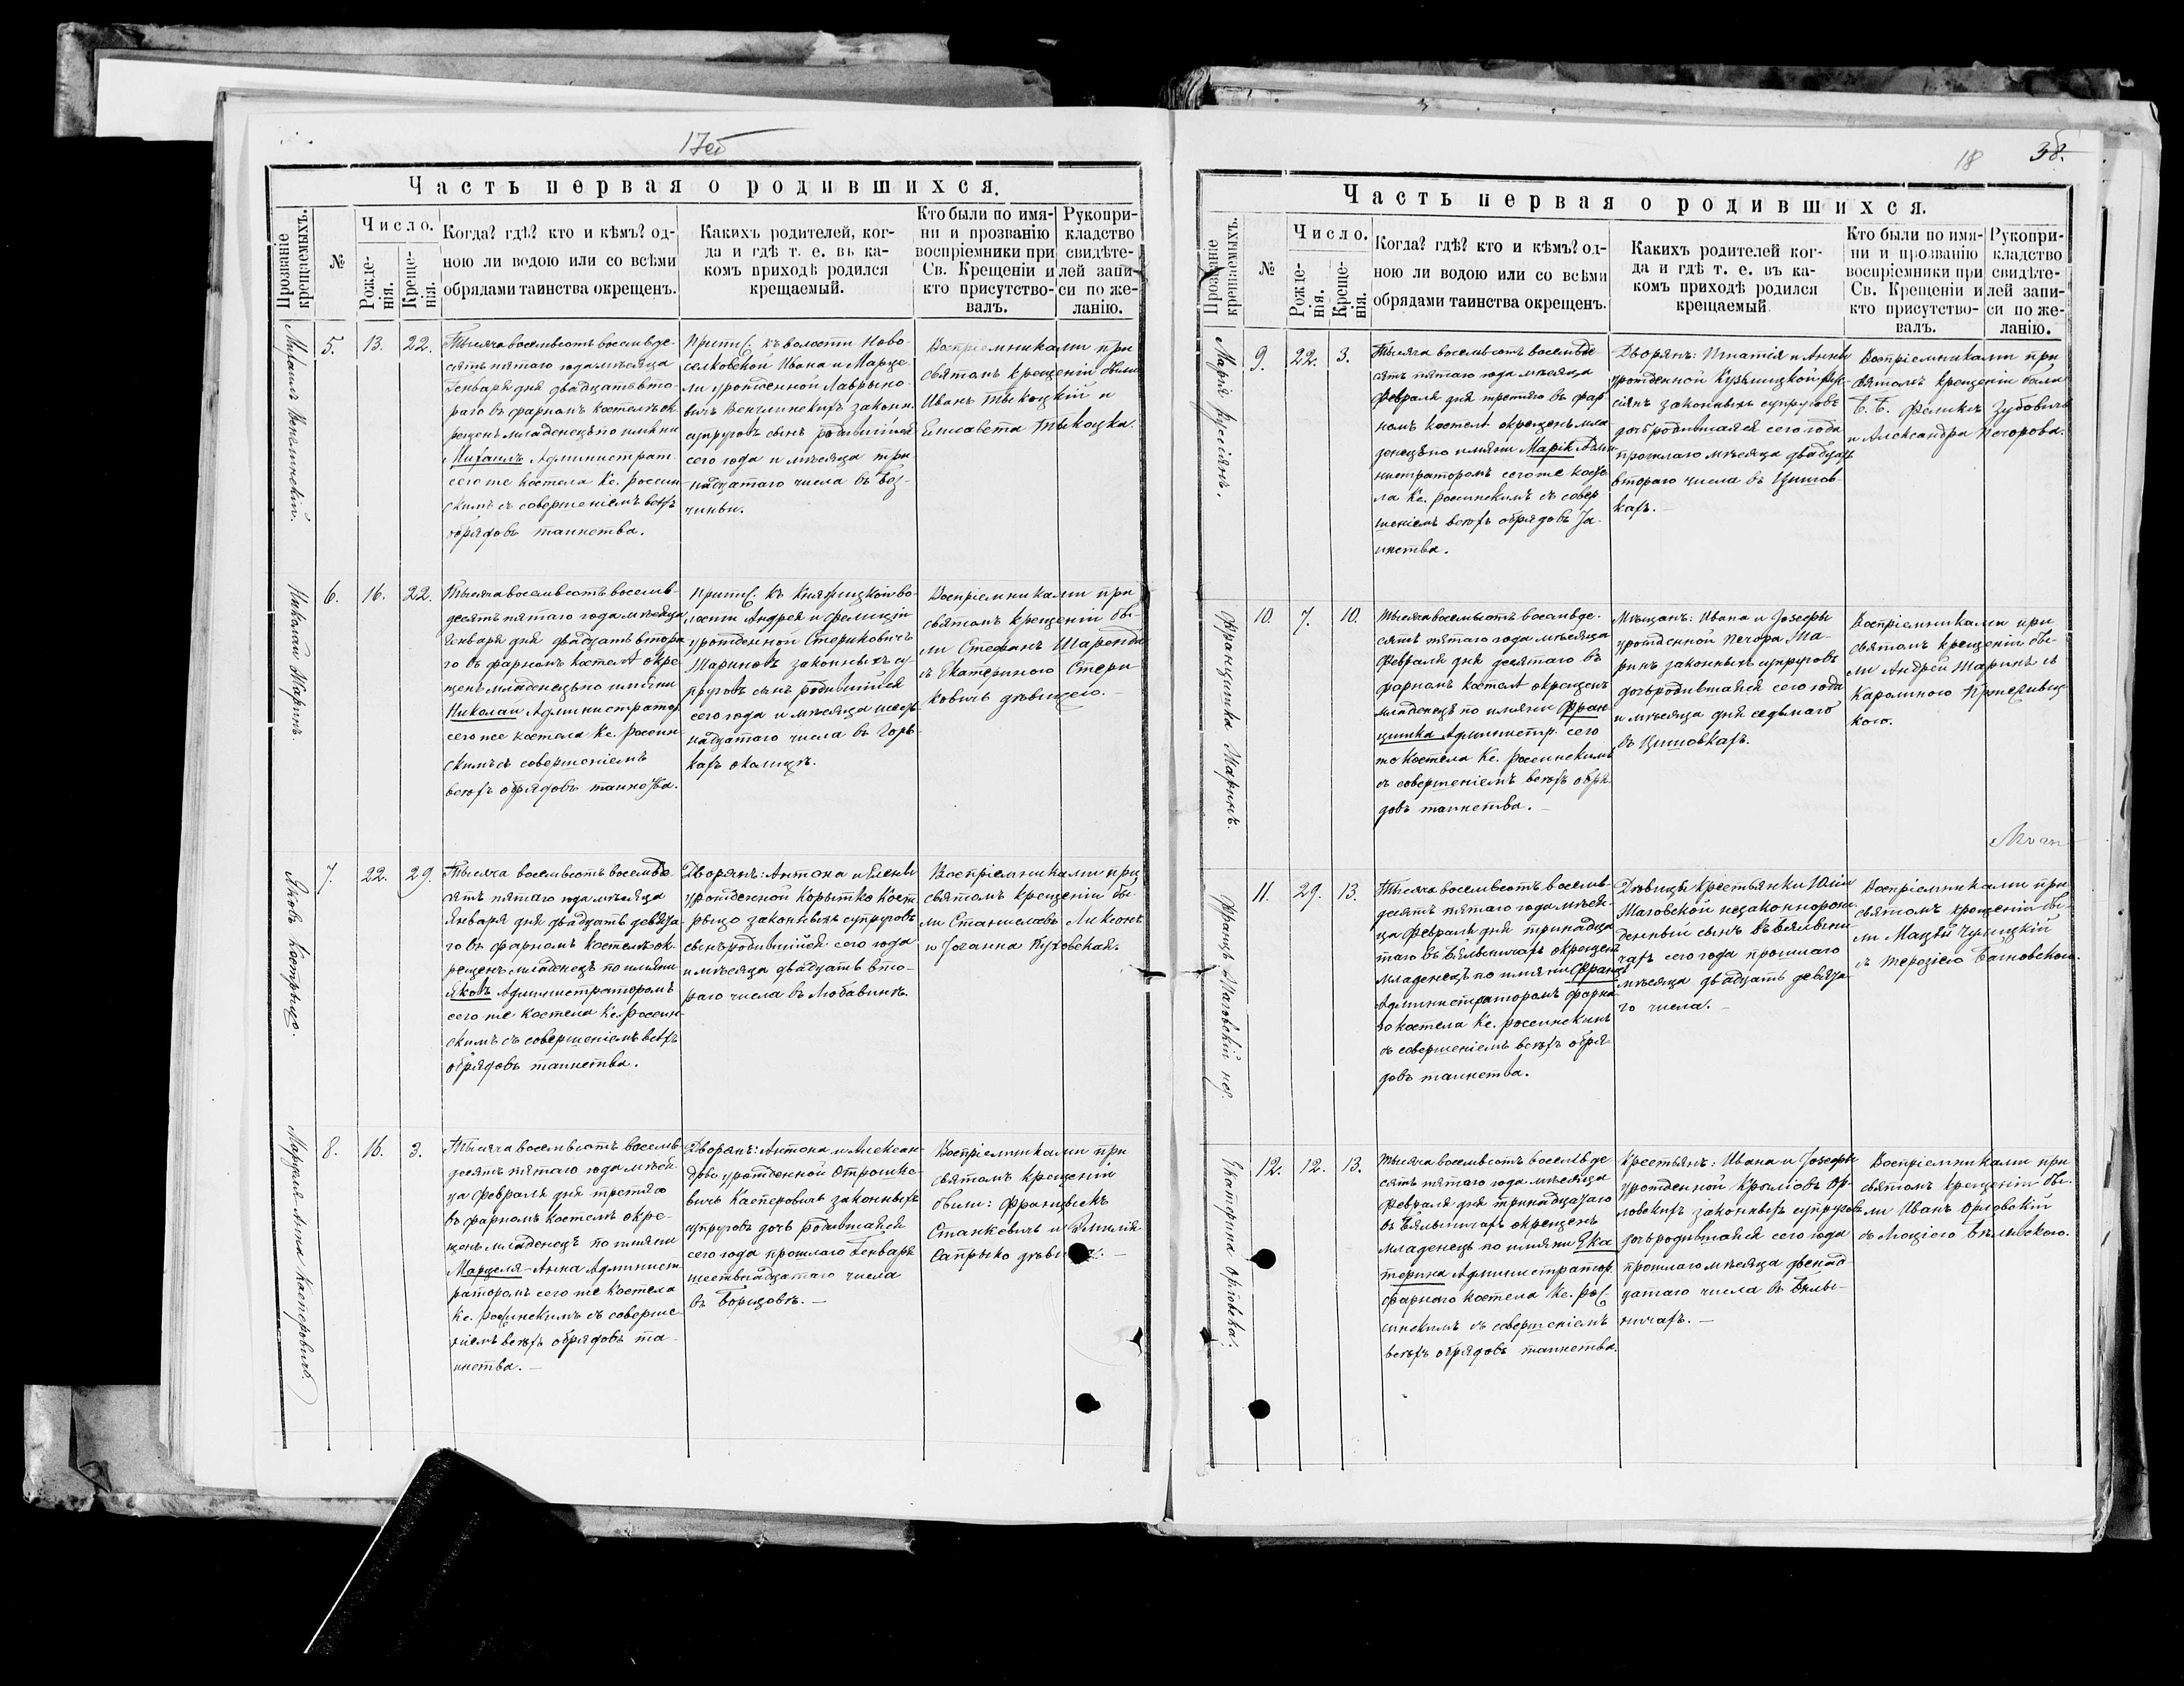 17об
Часть первая о родившихся.
Прозваніе крещаемыхъ.
№
Число.
Рожде-
нія.
Креще-
нія.
Когда? гдѣ? кто и кѣмъ? од-
ною ли водою или со всѣми
обрядами таинства окрещенъ.
Какихъ родителей, ког-
да и гдѣ т. е. въ ка-
комъ приходѣ родился
крещаемый.
Кто были по имя-
ни и прозванію
воспріемники при
Св. Крещеніи и
кто присутство-
валъ.
Рукопри-
кладство
свидѣте-
лей запи-
си по же-
ланію.
Михаилъ Венглинскій.
5.
13.
22.
Тысяча восемьсотъ восемьде-
сятъ пятаго года мѣсяца
Генваря дня двадцать вто-
раго въ фарномъ костелѣ ок-
рещенъ младенецъ по имяни
Михаилъ Администрат.
сего же костела Кс. Россин-
скимъ съ совершеніемъ всѣхъ
обрядовъ таинства.
Припис. къ волости Ново-
селковской Ивана и Марце-
ли урожденной Лаврыно-
вичъ Венглинскихъ законн.
супруговъ сынъ родившійся
сего года и мѣсяца три-
надцатаго числа въ
Воспріемниками при
святомъ крещеніи были
Иванъ Тыкоцкій и
Елисавета Тыкоцка.
Николай Маринъ.
6.
16.
22.
Тысяча восемьсотъ восемь-
десятъ пятаго года мѣсяца
Генваря дня двадцать втора-
го въ фарномъ костелѣ окре-
щенъ младенецъ по имяни
Николай Администратор.
сего же костела Кс. Россин-
скимъ съ совершеніемъ
всѣхъ обрядовъ таинства.
Припис. къ Княжицкой во-
лости Андрея и Фелиціи
урожденной Стериковичъ
Мариновъ законныхъ су-
пруговъ сынъ родившійся
сего года и мѣсяца шест-
надцатаго числа въ Гор-
кахъ околицѣ.
Воспріемниками при
святомъ крещеніи бы-
ли Стефанъ Шаренда
съ Екатериною Стери-
ковичъ дѣвицею.
Яковъ Кострыцо.
7.
22.
29.
Тысяча восемьсотъ восемьде-
сятъ пятаго года мѣсяца
Января дня двадцать девята-
го въ фарномъ костелѣ ок-
рещенъ младенецъ по имяни
Яковъ Администраторомъ
сего же костела Кс. Россин-
скимъ съ совершеніемъ всѣхъ
обрядовъ таинства.
Дворянъ: Антона и Елены
урожденной Корытко Кост-
рыцо законныхъ супруговъ
сынъ родившійся сего года
и мѣсяца двадцать вто-
раго числа въ Любавинѣ.
Воспріемниками при
святомъ крещеніи бы-
ли Станиславъ
и Іоганна Пуховская.
Марцеля-Анна Касперовичъ.
8.
16.
3.
Тысяча восемьсотъ восемь-
десятъ пятаго года мѣся-
ца Февраля дня третяго
въ фарномъ костелѣ окре-
щенъ младенецъ по имяни
Марцеля-Анна Админист-
раторомъ сего же костела
Кс. Россинскимъ съ соверше-
ніемъ всѣхъ обрядовъ та-
инства.
Дворянъ: Антона и Алексан-
дры урожденной Отрошке-
вичъ Касперовичъ законныхъ
супруговъ дочь родившаяся
сего года прошлаго Генваря
шестьнадцатаго числа
въ Борщовкѣ.
Воспріемниками при
святомъ крещеніи
были: Францискъ
Станкевичъ и Эмилія
Сапрыко
18
38.
Часть первая о родившихся.
Прозваніе крещаемыхъ.
№
Число.
Рожде-
нія.
Креще-
нія.
Когда? гдѣ? кто и кѣмъ? од-
ною ли водою или со всѣми
обрядами таинства окрещенъ.
Какихъ родителей ког-
да и гдѣ т. е. въ ка-
комъ приходѣ родился
крещаемый
Кто были по имя-
ни и прозванію
воспріемники при
Св. Крещеніи и
кто присутство-
валъ.
Рукопри-
кладство
свидѣте-
лей запи-
си по же-
ланію.
Марія Руссіянъ.
9.
22.
3.
Тысяча восемьсотъ восемьде-
сятъ пятаго года мѣсяца
Февраля дня третяго въ фар-
номъ костелѣ окрещенъ мла-
денецъ по имяни Марія Адми-
нистраторомъ сего же косте-
ла Кс. Россинскимъ съ совер-
шеніемъ всѣхъ обрядовъ Та-
инства.
Дворянъ: Игнатія и Анны
урожденной Кузьмицкой Рус-
сіянъ законныхъ супруговъ
дочь родившаяся сего года
прошлаго мѣсяца двадцать
втораго числа въ Цишов-
кахъ.
Воспріемниками при
святомъ крещеніи были
Б. Б. Феликсъ Зубовичъ
и Александра Печорова.
Францишка Маринъ.
10.
7.
10.
Тысяча восемьсотъ восемьде-
сятъ пятаго года мѣсяца
Февраля дня десятаго въ
фарномъ костелѣ окрещенъ
младенецъ по имяни Фран-
цишка Администр. сего
же костела Кс. Россинскимъ
съ совершеніемъ всѣхъ обря-
довъ таинства.
Мѣщанъ: Ивана и Іозефы
урожденной Печора Ма-
ринъ законныхъ супруговъ
дочь родившаяся сего года
и мѣсяца дня седьмаго
въ Цишовкахъ.
Воспріемниками при
святомъ крещеніи бы-
ли Андрей Маринъ съ
Каролиною
кою.
Францъ Маховскій нез.
11.
29.
13.
Тысяча восемьсотъ восемь-
десятъ пятаго года мѣся-
ца Февраля дня тринадца-
таго въ Бялыничахъ окрещенъ
младенецъ по имяни Францъ
Администраторомъ фарна-
го костела Кс. Россинскимъ
съ совершеніемъ всѣхъ обря-
довъ таинства.
Дѣвицы крестьянки Юліи
Маховской незаконнорож-
денный сынъ въ Бялыни-
чахъ сего года прошлаго
мѣсяца двадцать девята-
го числа.
Воспріемниками при
святомъ крещеніи бы-
ли Мацѣй
съ Терезіею
Екатерина Орловска.
12.
12.
13.
Тысяча восемьсотъ восемьде-
сятъ пятаго года мѣсяца
Февраля дня тринадцатаго
въ Бялыничахъ окрещенъ
младенецъ по имяни Ека-
терина Администратор.
фарнаго костела Кс. Рос-
синскимъ съ совершеніемъ
всѣхъ обрядовъ таинства.
Крестьянъ: Ивана и Іозефы
урожденной Крыловъ Ор-
ловскихъ законныхъ супруговъ
дочь родившаяся сего года
прошлаго мѣсяца двенад-
цатаго числа въ Бялы-
ничахъ.
Воспріемниками при
святомъ крещеніи бы-
ли Иванъ Орловскій
съ Люціею Бѣлявскою.